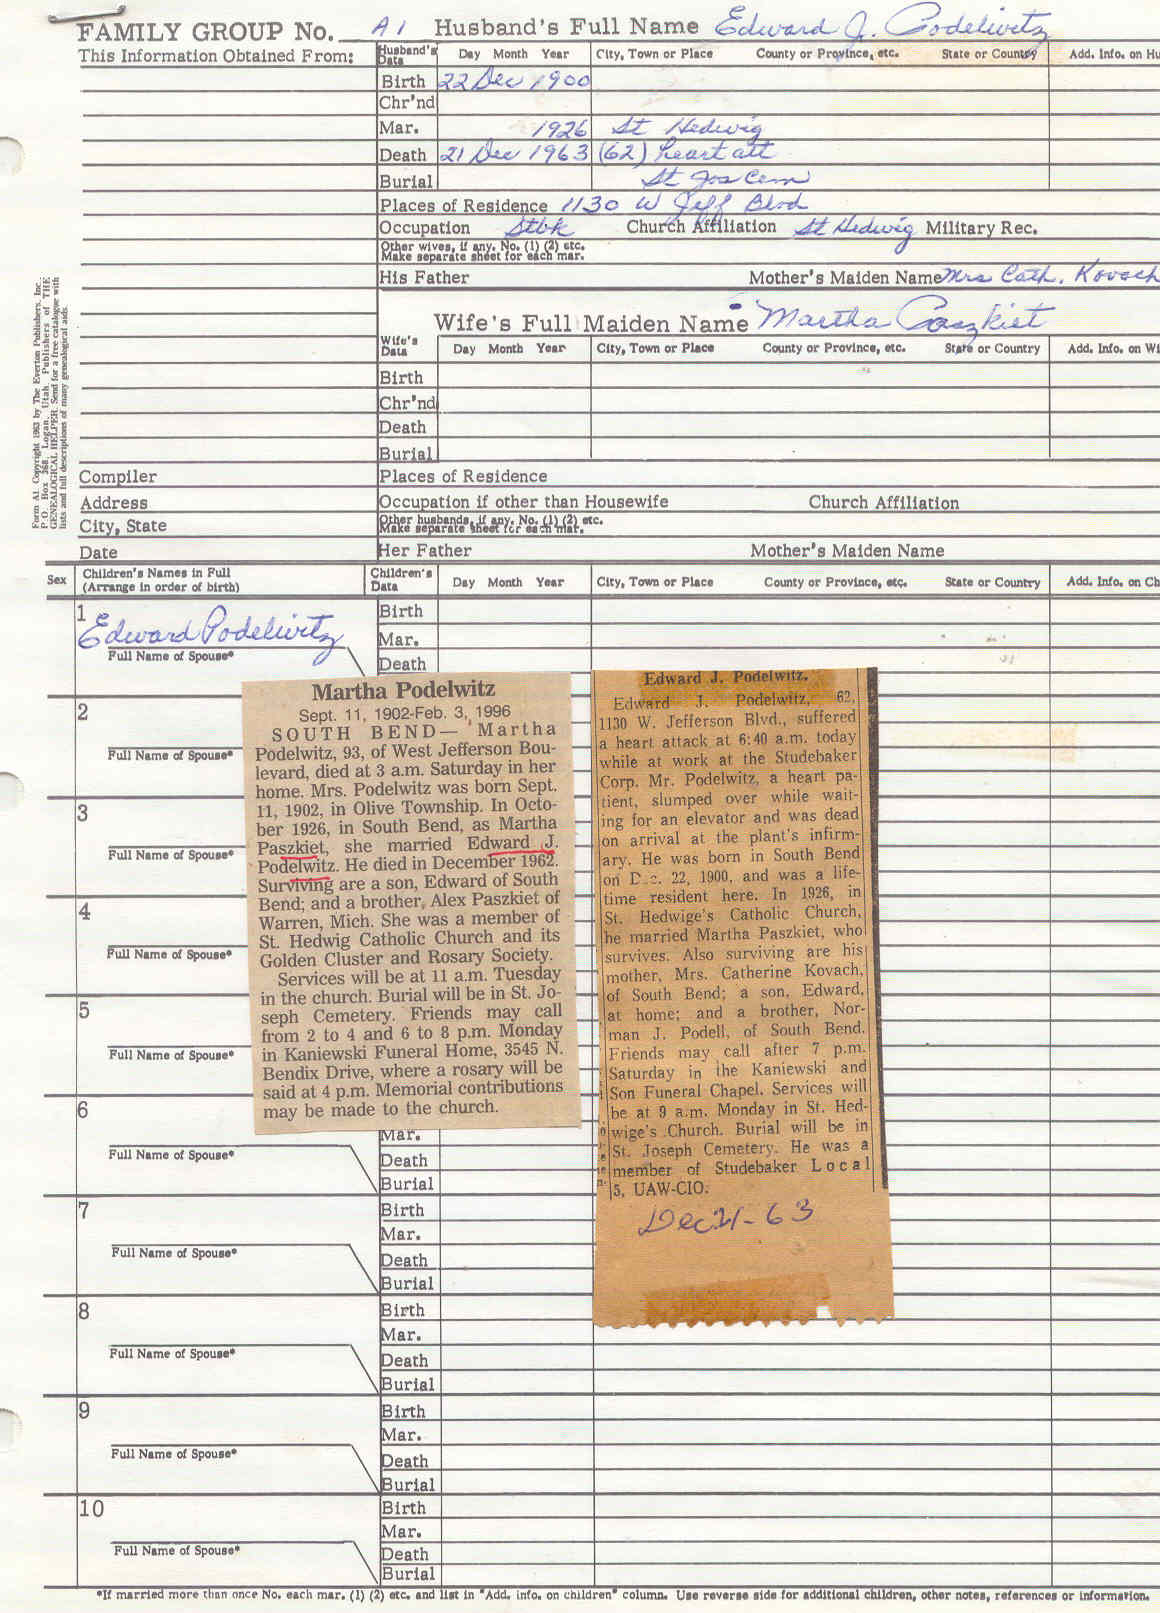 FAMILY GROUP No. A1 Husband's Full Name Edward J. Podelwitz
This Information Obtained From:
Husband's Data Day Month Year City, Town or Place County or Province, etc. State or Country Add. Info. on Hu
Birth 22 Dec 1900
Chr'nd
Mar. 1926 St Hedwig
Death 21 Dec 1963 (62) heart att
Burial St Jos Cem
Places of Residence 1130 W Jeff Blvd
Occupation Stbk Church Affiliation St Hedwig Military Rec.
Other wives, if any. No. (1) (2) etc.
Make separate sheet for each mar.
His Father Mother's Maiden Name Mrs Cath. Kovach
Wife's Full Maiden Name Martha Paszkiet
Wife's Data Day Month Year City, Town or Place County or Province, etc. State or Country Add. Info. on Wi
Birth
Chr'nd
Death
Burial
Compiler Places of Residence
Address Occupation if other than Housewife Church Affiliation
City, State Other husbands, if any. No. (1) (2) etc.
Make separate sheet for each mar.
Date Her Father Mother's Maiden Name
Form A1. Copyright 1963 by The Everton Publishers, Inc.,
P.O. Box 368, Logan, Utah. Publishers of THE
GENEALOGICAL HELPER. Send for a free catalogue with
lists and full descriptions of many genealogical aids.
Sex Children's Names in Full
(Arrange in order of birth)
Children's Data Day Month Year City, Town or Place County or Province, etc. State or Country Add. Info. on Ch
1 Birth
Edward Podelwitz Mar.
Full Name of Spouse*
Death
2
Full Name of Spouse*
3
Full Name of Spouse*
4
Full Name of Spouse*
5
Full Name of Spouse*
6
Mar.
Full Name of Spouse* Death
Burial
Martha Podelwitz
Sept. 11, 1902-Feb. 3, 1996
SOUTH BEND — Martha
Podelwitz, 93, of West Jefferson Bou-
levard, died at 3 a.m. Saturday in her
home. Mrs. Podelwitz was born Sept.
11, 1902, in Olive Township. In Octo-
ber 1926, in South Bend, as Martha
Paszkiet, she married Edward J.
Podelwitz. He died in December 1962.
Surviving are a son, Edward of South
Bend; and a brother, Alex Paszkiet of
Warren, Mich. She was a member of
St. Hedwig Catholic Church and its
Golden Cluster and Rosary Society.
Services will be at 11 a.m. Tuesday
in the church. Burial will be in St. Jo-
seph Cemetery. Friends may call
from 2 to 4 and 6 to 8 p.m. Monday
in Kaniewski Funeral Home, 3545 N.
Bendix Drive, where a rosary will be
said at 4 p.m. Memorial contributions
may be made to the church.
Edward J. Podelwitz.
Edward J. Podelwitz, 62,
1130 W. Jefferson Blvd., suffered
a heart attack at 6:40 a.m. today
while at work at the Studebaker
Corp. Mr. Podelwitz, a heart pa-
tient, slumped over while wait-
ing for an elevator and was dead
on arrival at the plant's infirm-
ary. He was born in South Bend
on Dec. 22, 1900, and was a life-
time resident here. In 1926, in
St. Hedwige's Catholic Church,
he married Martha Paszkiet, who
survives. Also surviving are his
mother, Mrs. Catherine Kovach,
of South Bend; a son, Edward,
at home; and a brother, Nor-
man J. Podell, of South Bend.
Friends may call after 7 p.m.
Saturday in the Kaniewski and
Son Funeral Chapel. Services will
be at 9 a.m. Monday in St. Hed-
wige's Church. Burial will be in
St. Joseph Cemetery. He was a
member of Studebaker Local
5, UAW-CIO.
Dec 21-63
7 Birth
Mar.
Full Name of Spouse* Death
Burial
8 Birth
Mar.
Full Name of Spouse* Death
Burial
9 Birth
Mar.
Full Name of Spouse* Death
Burial
10 Birth
Mar.
Full Name of Spouse* Death
Burial
*If married more than once No. each mar. (1) (2) etc. and list in "Add. info. on children" column. Use reverse side for additional children, other notes, references or information.